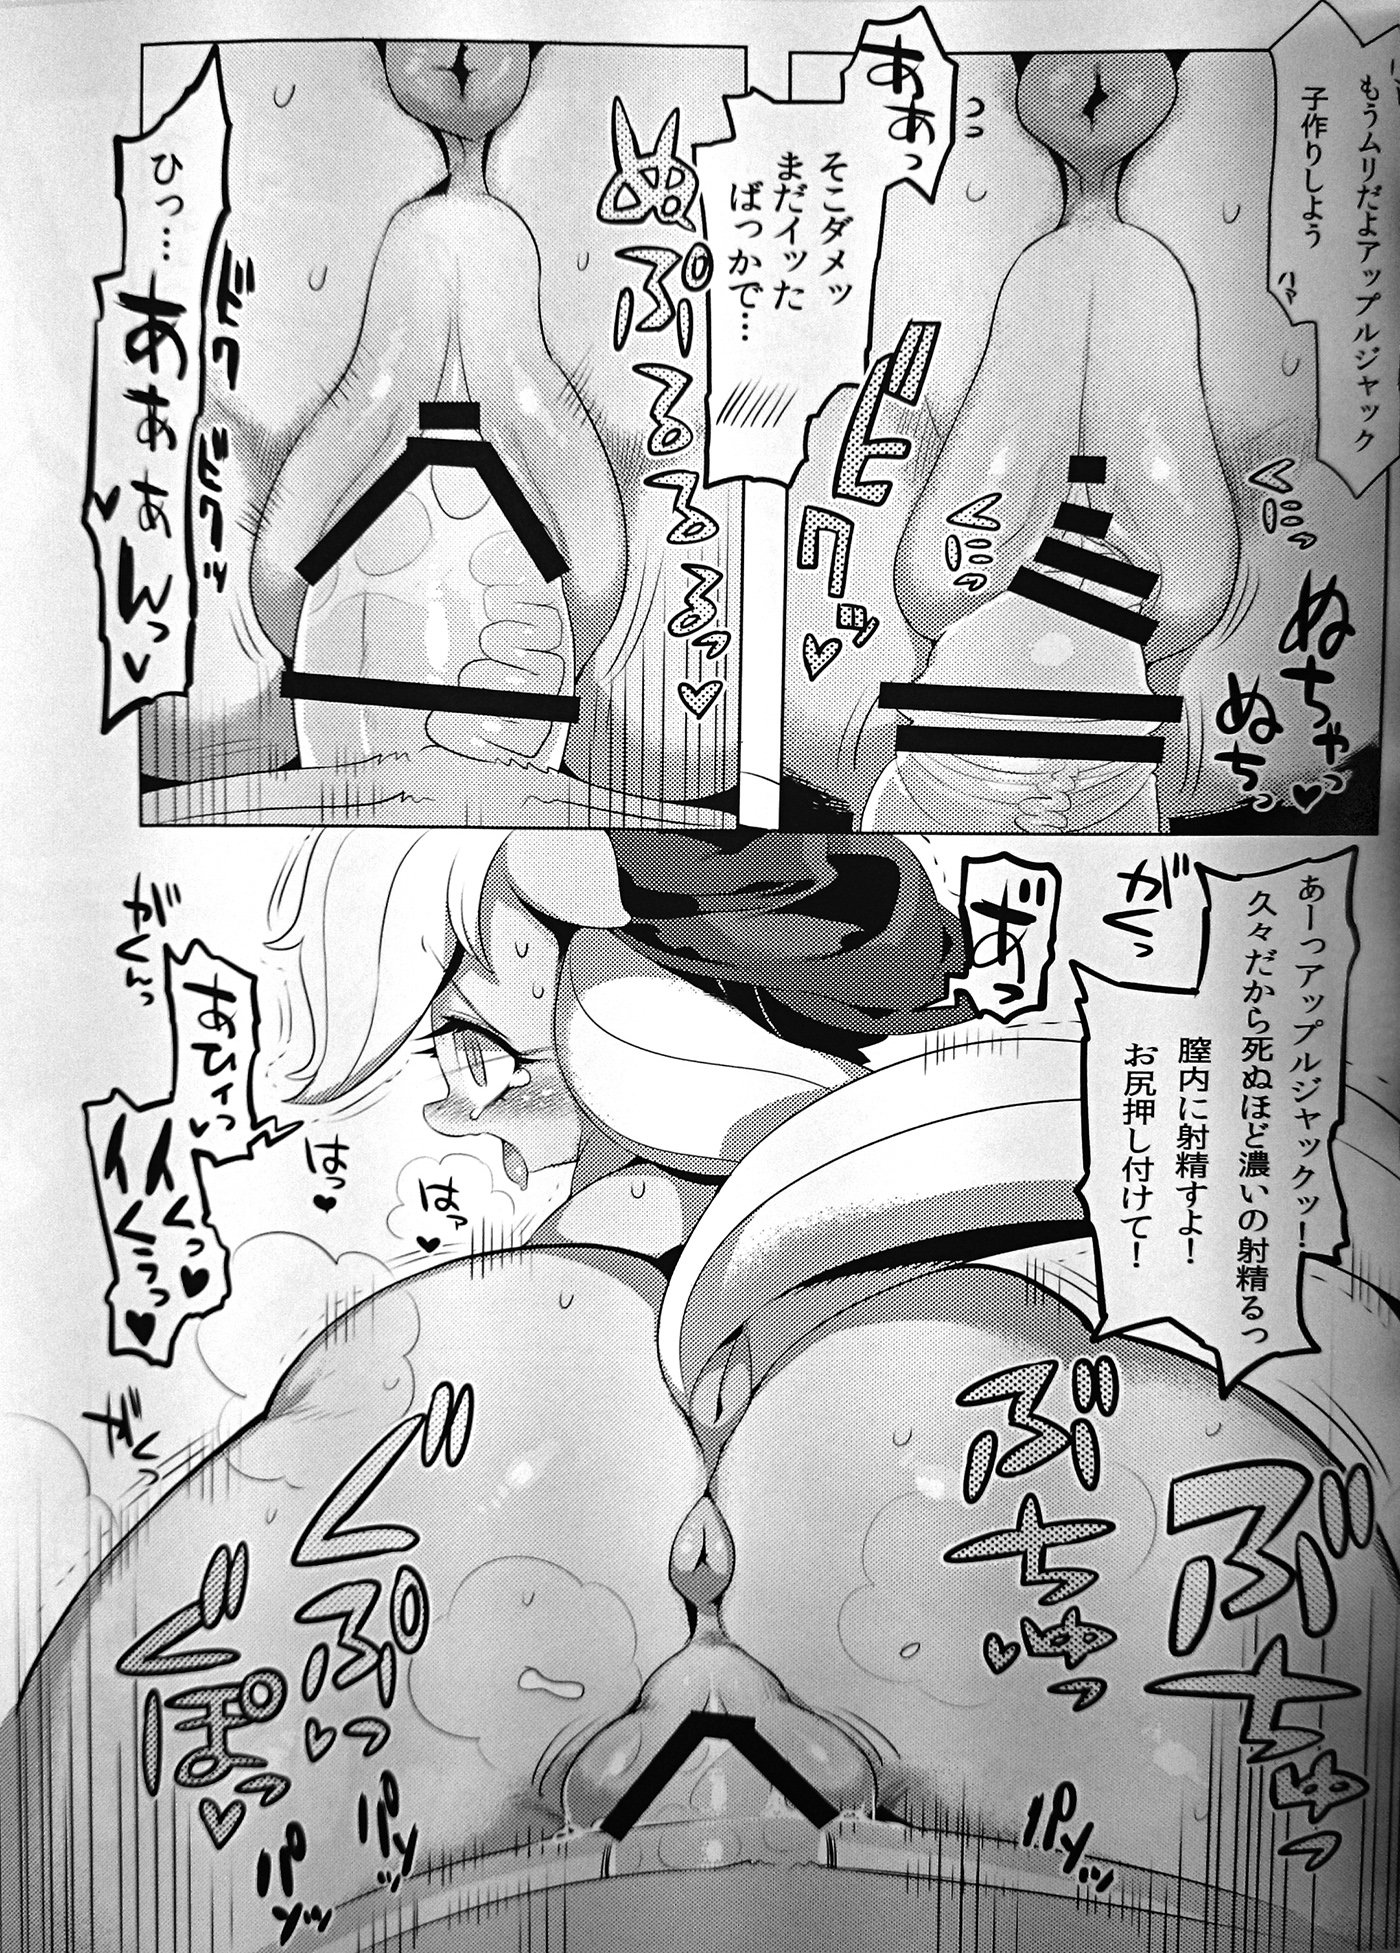 もうムリだよアップルジャック
子作りしよう
ハァ
ああっ
そこダメッ
まだイッた
ばっかで…
ビクッ♥
くにぃっ
くにぃっ
ぬちゃっ♥
ぬちっ
ぬぷるるるっ♥
ひっ…
あああんっ♥
ドクドクッ
あーっアップルジャックッ！
久々だから死ぬほど濃いの射精るっ
膣内に射精すよ！
お尻押し付けて！
がくっ
あ゛っ
がくんっ
あひィっ♥
イイくっ♥くぅっ♥
はっ♥
はァ♥
がくっ
ぶちゅっ
ぶちゅっ♥
ぐぷっ♥
ぐぽっ♥
パンッ
パンッ
パンッ